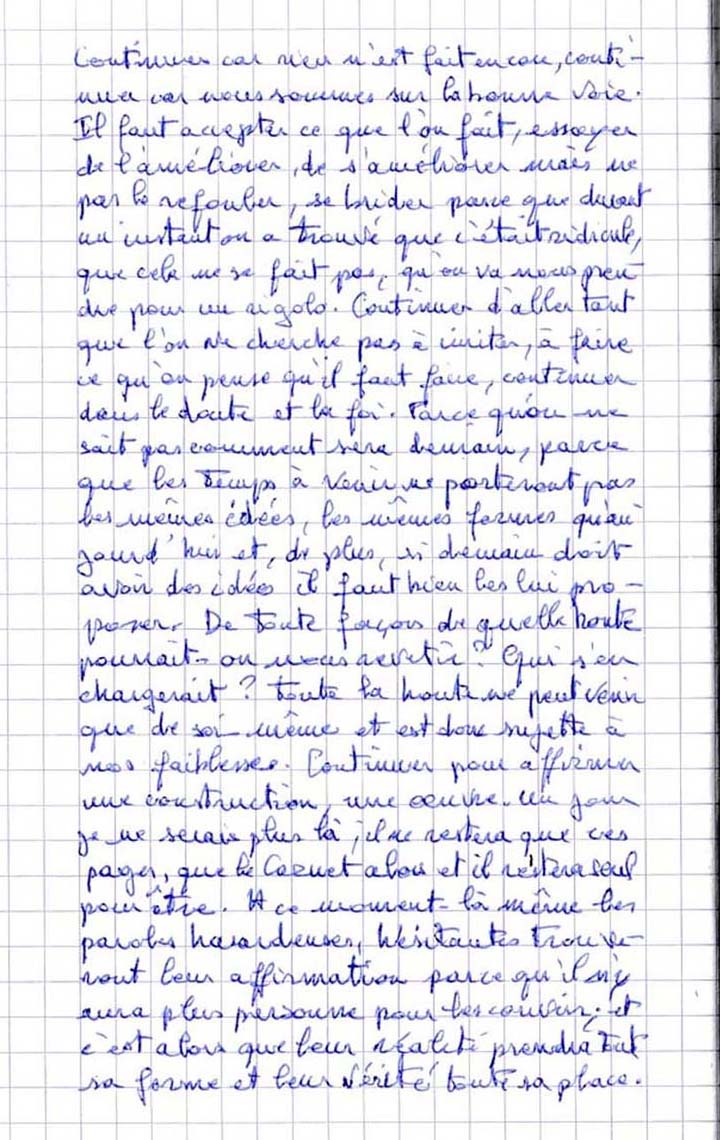 Continuer car rien n'est fait encore, conti-
nuer car nous sommes sur la bonne voie.
Il faut accepter ce que l'on fait, essayer
de l'améliorer, de s'améliorer mais ne
pas le refouler, se brider parce que durant
un instant on a trouvé que c'était ridicule,
que cela ne se fait pas, qu'on va nous pren
dre pour un rigolo. Continuer d'aller tant
que l'on ne cherche pas à imiter, à faire
ce qu'on pense qu'il faut faire, continuer
dans le doute et la foi. Parce qu'on ne
sait pas comment sera demain, parce
que les temps à venir ne porteront pas
les mêmes idées, les mêmes formes qu'au
jourd'hui et, de plus, si demain doit
avoir des idées il faut bien les lui pro-
poser. De toute façons de quelle honte
pourrait-on nous revêtir ? Qui s'en
chargerait ? Toute la honte ne peut venir
que de soi-même et est donc sujette à
nos faiblesses. Continuer pour affirmer
une construction, une oeuvre. Un jour
je ne serais plus là, il ne restera que ces
pages, que le Carnet alors et il restera seul
pour être. A ce moment-là même les
paroles hasardeuses, hésitantes trouve-
ront leur affirmation parce qu'il n'y
aura plus personne pour les couvrir ; et
c'est alors que leur réalité prendra tout
sa forme et leur Vérité toute sa place.